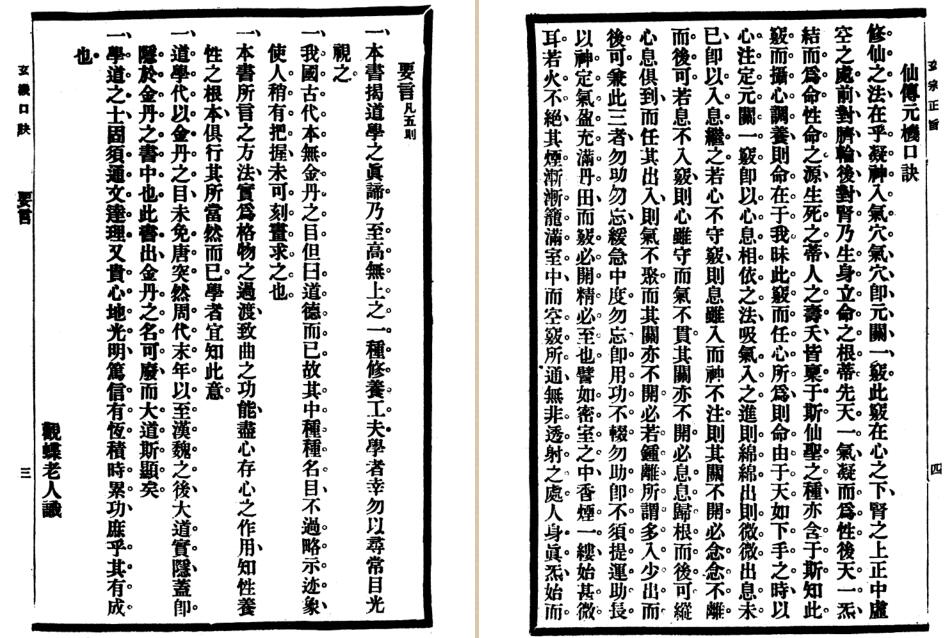 要言凡五則
一、本書揭道學之眞諦乃至高無上之一種修養工夫學者幸勿以尋常目光
視之
一、我國古代本無金丹之目但曰道德而已故其中種種名目不過略示迹象
使人稍有把握未可刻畫求之也
一、本書所言之方法實爲格物之過渡致曲之功能盡心存心之作用知性養
性之根本俱行其所當然而已學者宜知此意
一、道學代以金丹之目未免唐突然周代末年以至漢魏之後大道實隱蓋卽
隱於金丹之書中也此書出金丹之名可廢而大道斯顯矣
一、學道之士固須通文達理又貴心地光明篤信有恆積時累功庶乎其有成
也
觀蝶老人識
玄機口訣
要言
三
玄宗正旨
四
仙傳元機口訣
修仙之法在乎凝神入氣穴氣穴卽元關一竅此竅在心之下腎之上正中虛
空之處前對臍輪後對腎乃生身立命之根蒂先天一氣凝而爲性後天一炁
結而爲命性命之源生死之蒂人之壽夭皆稟于斯仙聖之種亦含于斯知此
竅而攝心調養則命在于我昧此竅而任心所爲則命由于天如下手之時以
心注定元關一竅卽以心息相依之法吸氣入之進則綿綿出則微微出息未
已卽以入息繼之若心不守竅則息雖入而神不注則其關不開必念念不離
而後可若息不入竅則心雖守而氣不貫其關亦不開必息息歸根而後可縱
心息俱到而任其出入則氣不聚而其關亦不開必若鍾離所謂多入少出而
後可兼此三者勿助勿忘緩急中度勿忘卽用功不輟勿助卽不須提運助長
以神定氣盈充滿丹田而竅必開精必至也譬如密室之中香煙一縷始甚微
耳若火不絕其煙漸漸籠滿室中而空竅所通無非透射之處人身眞炁始而